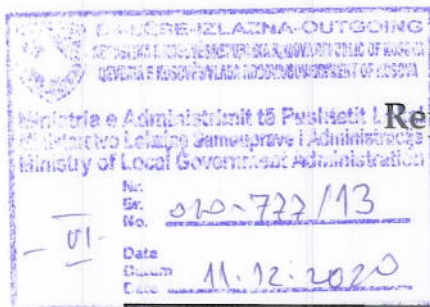 DALËSE-IZLAZNA-OUTGOING
QEVERIA E KOSOVËS/VLADA KOSOVA/GOVERNMENT OF KOSOVA
Ministria e Administrimit të Pushtetit
Re
Ministarstvo Lokalne Samouprave i Administracije
Ministry of Local Government Administration
Nr.
Br.
No. 020-777/13
- VI -
Date
Datum
Date 11.12.2020